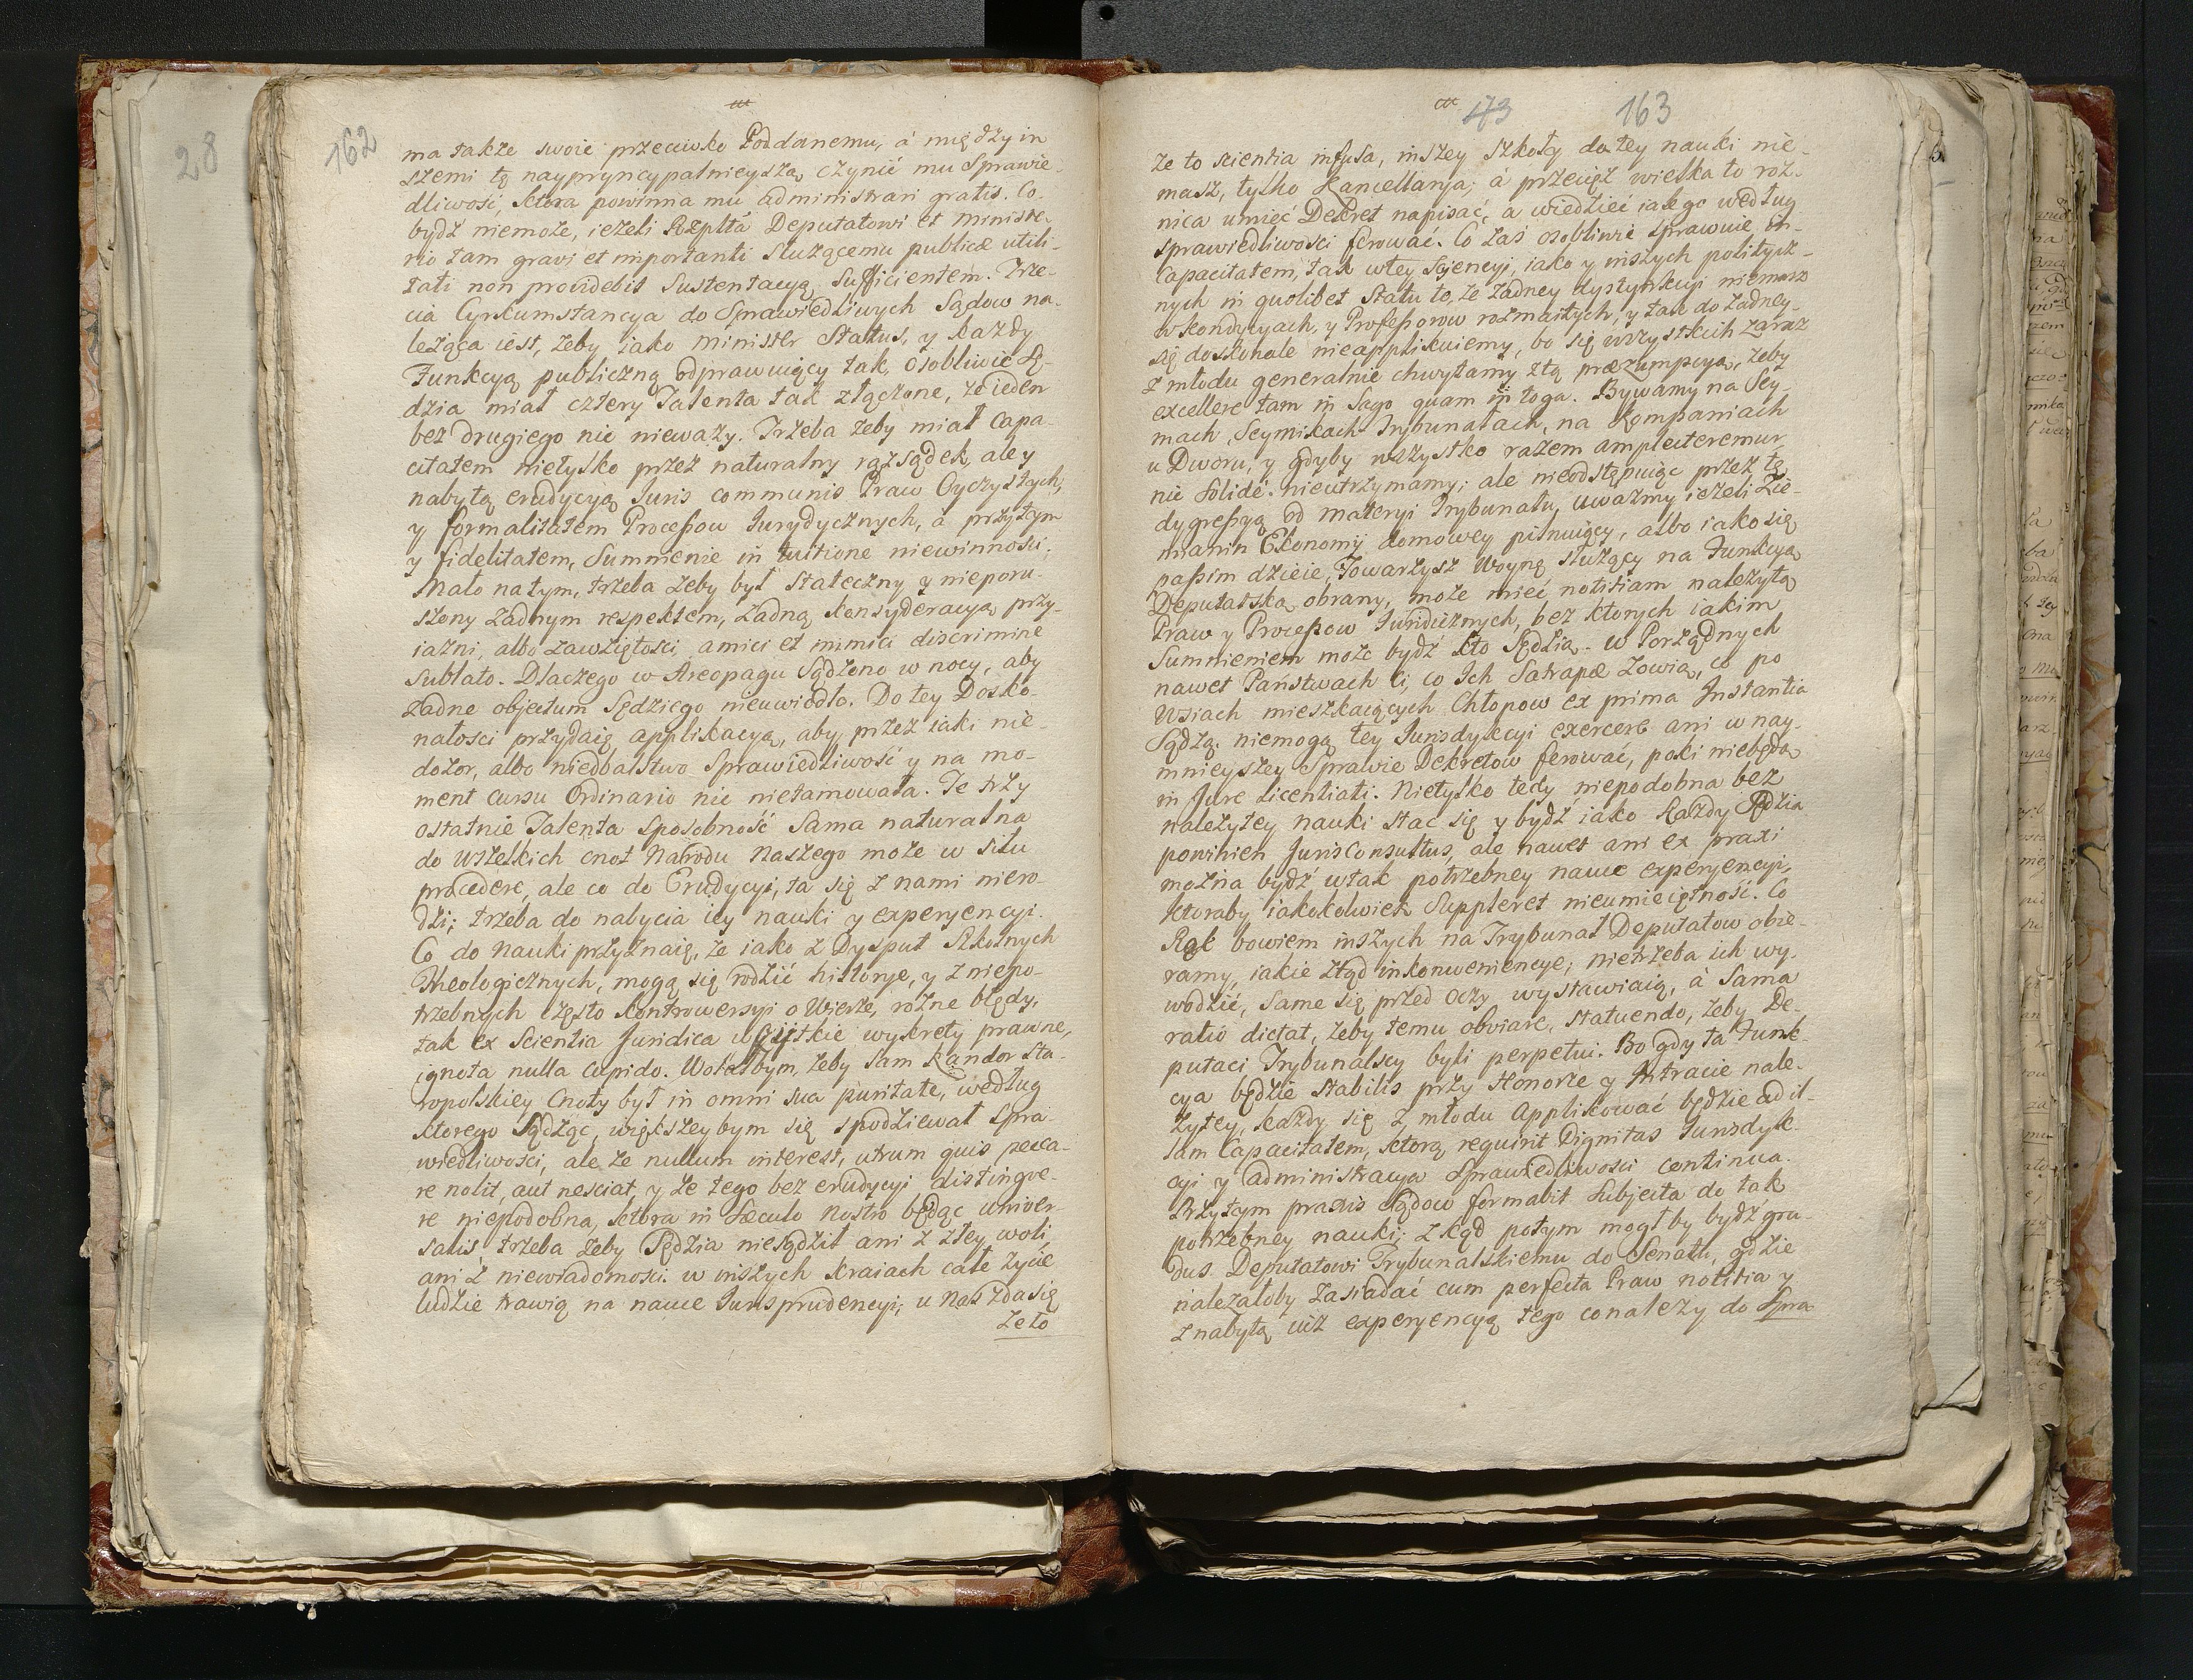 28
162
ma także swoie przeciwko Poddanemu, á między in
szemi tę naypryncypalnieyszą czynić mu Sprawie-
dliwość, ktora powinna mu administrari gratis. Co
bydź niemoże, ieżeli Rzplta Deputatowi et ministe-
rio tam gravi et importanti służącemu publicæ utili-
tati non providebit Sustentacyą Sufficientem. Trze-
cia Cyrkumstancya do Sprawiedliwych Sądow na-
leżąca iest, żeby iako minister Status, y każdy
Funkcyą publiczną odprawuiący tak, osobliwie Sę-
dzia miał cztery Talenta tak złączone, że ieden
bez drugiego nic nieważy. Trzeba żeby miał Capa-
citatem nietylko przez naturalny rozsądek, ale y
nabytą erudycyą Juris communis Praw Oyczystych,
y formalitatem Processow Jurydycznych, á przytym
y fidelitatem, Summienie in tuitione niewinności,
Mało natym, trzeba żeby był stateczny y nieporu-
szony żadnym respektem, żadną konsyderacyą przy-
iaźni, albo zawziętości amici et inimici discrimine
sublato. Dlaczego w Areopagu Sądzono w nocy, aby
żadne objectum Sędziego nieuwiodło. Do tey Dosko-
nałości przydaię applikacyą, aby przez iaki nie-
dozor, albo niedbalstwo Sprawiedliwość y na mo-
ment cursu Ordinario nic nietamowała. Te trzy
ostatnie Talenta sposobność sama naturalna
do wszelkich cnot Narodu Naszego może w situ
procedere, ale co do Erudycyi, ta się z nami niero-
dzi; trzeba do nabycia iey nauki y experyencyi.
Co do Nauki przyznaię, że iako z Dysput Szkolnych
Theologicznych, mogą się rodzić historye, y z niepo-
trzebnych często kontrowersyi o Wierze, rożne błędy,
tak ex Scientia Juridica wszystkie wykręty prawne,
ignota nulla cupido. Wolałbym, żeby sam kandor sta-
ropolskiey Cnoty był in omni sua puritate, według
ktorego Sądząc, większeybym się spodziewał spra-
wiedliwości, ale że nullum interest, utrum quis pecca-
re nolit, aut nesciat, y że tego bez erudycyi distingve-
re niepodobna, ktora in Sæculo nostro będąc univer-
salis, trzeba żeby Sędzia niesądził ani z złey woli,
ani z niewiadomości. w inszych kraiach całe życie
ludzie trawią na nauce Jurisprudencyi, u nas zda się
że to
173 163
że to scientia infusa, inszey szkoły do tey nauki nie-
masz, tylko Kancellarya; á przecięż wielka to roż-
nica umieć Dekret napisać, a wiedzieć iak go według
sprawiedliwości ferować. Co zaś osobliwie sprawuie in-
Capacitatem, tak wtey Scjencyi, iako y inszych politycz-
nych in quolibet Statu to, że żadney dystynkcyi niemasz
w kondycyach, y Professorow rozmaitych, y tak do żadney
się doskonale nieapplikuiemy, bo się wszystkich zaraz
z młodu generalnie chwytamy z tą præzumpcyą, żeby
excellere tam in Sago quam in toga. Bywamy na Sey-
mach, Seymikach Trybunałach, na kompaniach
u Dworu, y gdyby wszystko razem amplecteremur
nic Solidé nieutrzymamy; ale nieodstępuiąc przez tę
dygressyą od materyi Trybunału, uważmy ieżeli Zie-
mianin Ekonomij domowey pilnuiący, albo iako się
passim dzieie, Towarzysz Woyną służący na Funkcyą
Deputatską obrany, może mieć notitiam należytą
Praw y Processow Juridicznych, bez ktorych iakim
Summieniem może bydź kto Sędzią. w Porządnych
nawet Państwach Ci, co Ich Satrapæ zowią, co po
Wsiach mieszkaiących Chłopow ex prima Instantia
Sądzą. niemogą tey Jurisdykcyi exercere ani w nay-
mnieyszey Sprawie Dekretow ferować, poki niebędą
in Jure Licentiati. Nietylko tedy niepodobna bez
należytey nauki stac się y bydź iako każdy Sędzia
powinien Juris Consultus, ale nawet ani ex praxi
można bydź wtak potrzebney nauce experyencyi,
ktoraby iakokolwiek Suppleret nieumieiętność. Co
Rok bowiem inszych na Trybunał Deputatow obie-
ramy, iakie ztąd inkonweniencye, nietrzeba ich wy-
wodzić, same się przed oczy wystawiaią, á Sama
ratio dictat, żeby temu obviare, statuendo, żeby De-
putaci Trybunalscy byli perpetui. Bo gdy ta Funk-
cya będzie stabilis przy Honorze y Intracie nale-
żytey, każdy się z młodu Applikować będzie ad il-
lam Capacitatem, ktorą requirit Dignitas Jurisdyk-
cyi y administracya Sprawiedliwości continua.
Przytym praxis Sądow formabit Subjecta do tak
potrzebney nauki; z kąd potym mogłby bydź gra-
dus Deputatowi Trybunalskiemu do Senatu, gdzie
należałoby zasiadać cum perfecta Praw notitia y
z nabytą iuż experyencyą tego co należy do Spra-